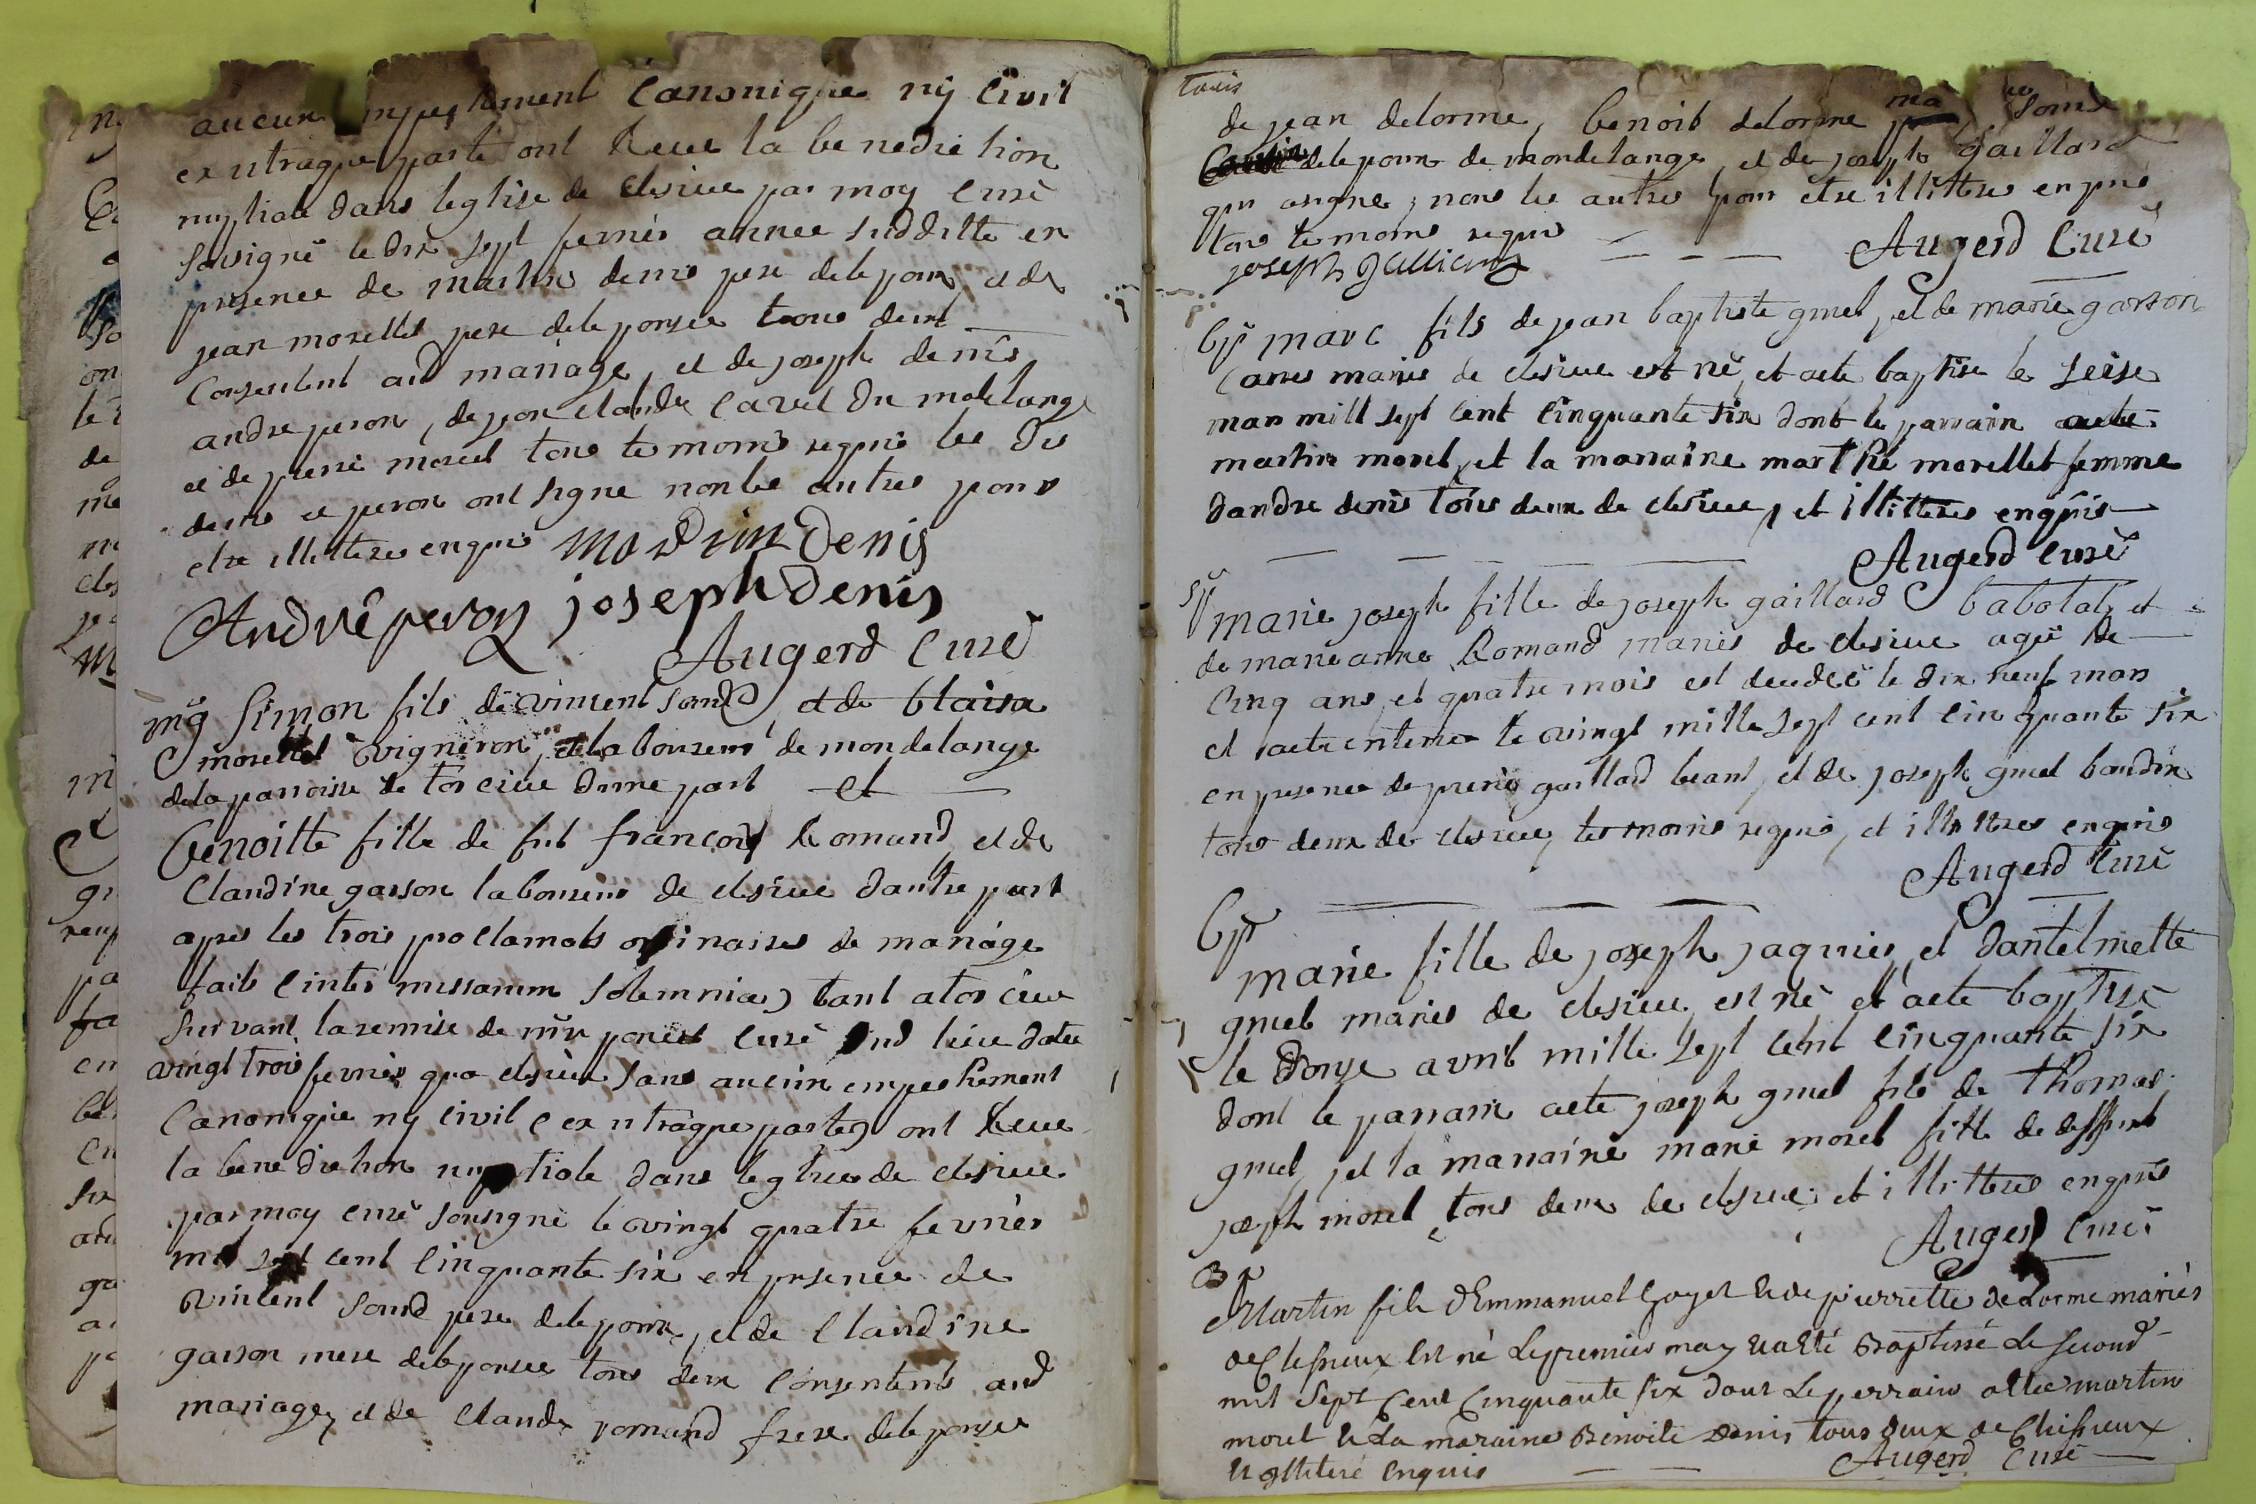 aucun empechement canonique ny civil
ex utraque parte ont Receu la benediction
nuptiale dans leglise de clesieu par moy curé
sousigné le dix sept fevrier annee suditte en
presence de martin denis pere de lepoux, et de
jean morellet pere de leponsee tous deux
consentent aud mariage, et de joseph denis,
andre peron, de jean claude cavel du molelange
et de pierre morel tous temoins requis les dis
denis et peron ont signe non les autres pour
etre illitteres enquis Mardin Denis
André peron joseph Denis
Augerd curé
mg Simon fils de vincent sond, et de blaise
morellet vigneron, et laboureurs de mondelange
de la parroisse de torcieu dune part et
Benoitte fille de fut françois Romand, et de
Claudine garson laboureurs de clesieu dautre part
apres les trois proclamats ordinaires de mariage
faits (inter missarum solemnia) tant a torcieu
suivant la remise de mr poncet curé dud lieu datee
vingt trois fevrier qua clesieu sans aucun empechement
canonique ny civil (ex utraque parte) ont Receu
la benediction nuptiale dans leglise de clesieu
par moy curé sousigné le vingt quatre fevrier
mil sept cent cinquante six en presence de
vincent sond pere de lepoux, et de Claudine
garson mere de leponsee tous deux consentents aud
mariage, et de Claude romand frere de leponsee
trois
de jean delorme, benoit delorme ma sond
de lepoux de mondelange, et de joseph Gaillard
qui a signe, non les autres pour etre illitteres enquis
tous temoins requis
joseph galliard Augerd Curé
Bp marc fils de jean baptiste gruel, et de marie garson
mariés de clesieu est né, et a ete baptise le seise
mars mill sept cent cinquante six dont le parrain a ete
martin morel, et la marraine marthe morellet femme
dandre denis tous deux de clesieu, et illitteres enquis
Augerd curé
Sp marie joseph fille de joseph gaillard babolat, et
de marie anne Romand mariés de clesieu agee de
cinq ans, et quatre mois est decedee le dix neuf mars
et a ete enterree le vingt mille sept cent cinquante six
en presence de pierre gaillard beant, et de joseph gruel baudin
tous deux de clesieu, temoins requis, et illitteres enquis
Augerd Curé
Bp
marie fille de joseph jaquier, et dantelmette
gruel mariés de clesieu, est né et a ete baptisé
le donze avril mille sept cent cinquante six
dont le parrain a ete joseph gruel fils de thomas
gruel, et la marraine marie morel fille de deffunt
joseph morel, tous deux de clesieu, et illitteres enquis
Augerd Curé
Bp
Martin fils d'Emmanuel Goyet & de pierrette de Lorme mariés
de Clesieux est né le premier may & a été Baptisé le second
mil sept cent cinquante six dont le perrain a été martin
morel & la maraine Benoite Denis tous deux de Clesieux
& illiteré enquis Augerd Curé